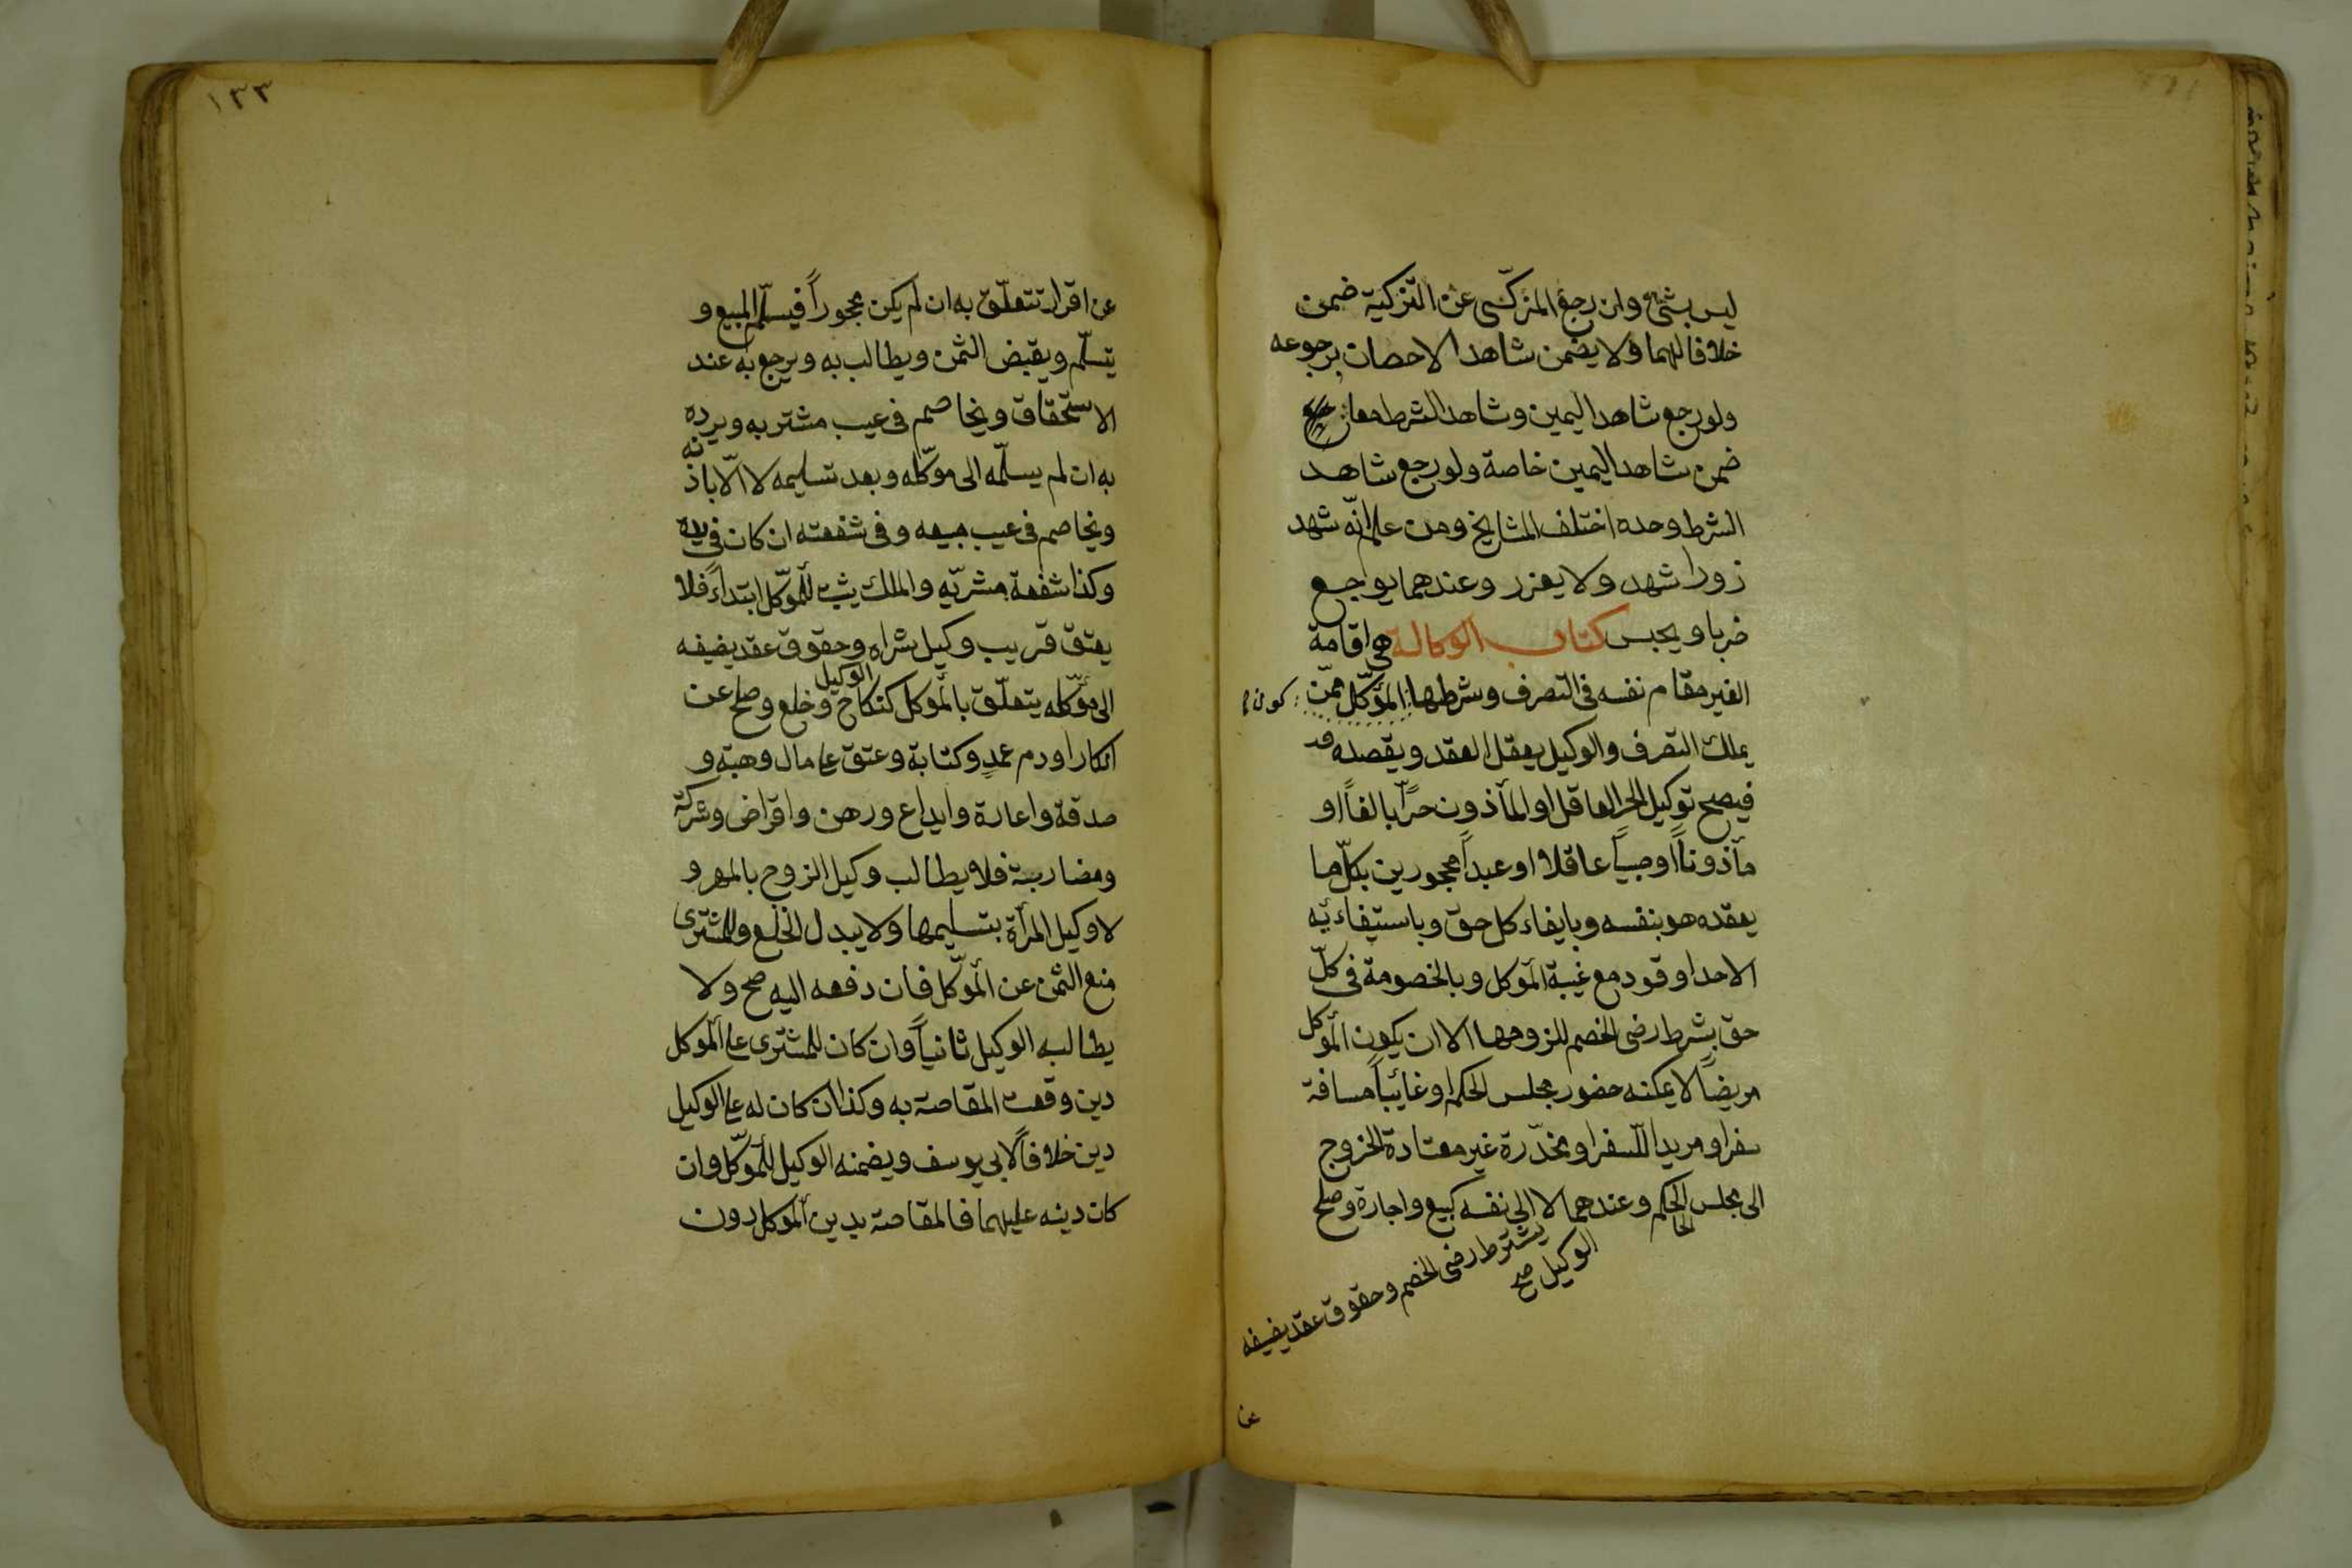 ليس بشئ وان رجع المزكّى عن التزكية ضمن
خلافا لهما ولا يضمن شاهد الاحصان برجوعه
ولو رجع شاهد اليمين وشاهد الشرط معا
ضمن شاهد اليمين خاصة ولو رجع شاهد
الشرط وحده اختلف المشايخ ومن علم انّه شهد
زورا شهد ولا يعزر وعندهما يوجع
ضربا ويحبس كتاب الوكالة هى اقامة
الغير مقام نفسه فى التصرف وشرطها المؤكّل ممّن
كون
يملك التصرف والوكيل يعقل العقد ويقصده
فيصح توكيل الحر العاقل او المأذون حرّاً بالغاً او
مأذوناً او صبياً عاقلا او عبداً محجورين بكلّ ما
يعقده هو بنفسه وبايفاء كل حق وباستيفائه
الا حدا وقود مع غيبة المؤكل وبالخصومة فى كلّ
حق بشرط رضى الخصم للزومها الا ان يكون المؤكل
مريضاً لا يمكنه حضور مجلس الحكم او غائباً مسافة
سفر او مريدا للسفر او مخدّرة غير معتادة الخروج
الى مجلس الحكم وعندهما لا الى نفسه كبيع واجارة وصلح
الحا
يشترط رضى الخصم وحقوق عقد يضيفه
الوكيل صح
عن
١٣٣
عن اقرار تتعلّق به ان لم يكن محجوراً فيسلّم المبيع و
يتسلّم ويقبض الثمن ويطالب به ويرجع به عند
الاستحقاق ويخاصم فى عيب مشتريه ويرده
به ان لم يسلّمه الى موكّله وبعد تسليمه لا الّا باذنه
ويخاصم فى عيب مبيعه وفى شفعته ان كان فى يده
وكذا شفعة مشريّه والملك يثبت للمؤكّل ابتداءً فلا
يعتق قريب وكيل شراه وحقوق عقد يضيفه
الوكيل
الى مؤكّله يتعلّق بالمؤكل كنكاح وخلع وصلح عن
انكار او دم عمدٍ وكتابة وعتق على مال وهبة و
صدقة واعارة وايداع ورهن واقراض وشركة
ومضاربة فلا يطالب وكيل الزوج بالمهر و
لا وكيل المرأة بتسليمها ولا ببدل الخلع وللمشترى
منع الثمن عن المؤكّل فان دفعه اليه صح ولا
يطالبه الوكيل ثانياً وان كان للمشترى على المؤكل
دين وقعت المقاصة به وكذا ان كان له على الوكيل
دين خلافاً لابى يوسف ويضمنه الوكيل للمؤكّل وان
كان دينه عليهما فالمقاصة بدين المؤكل دون